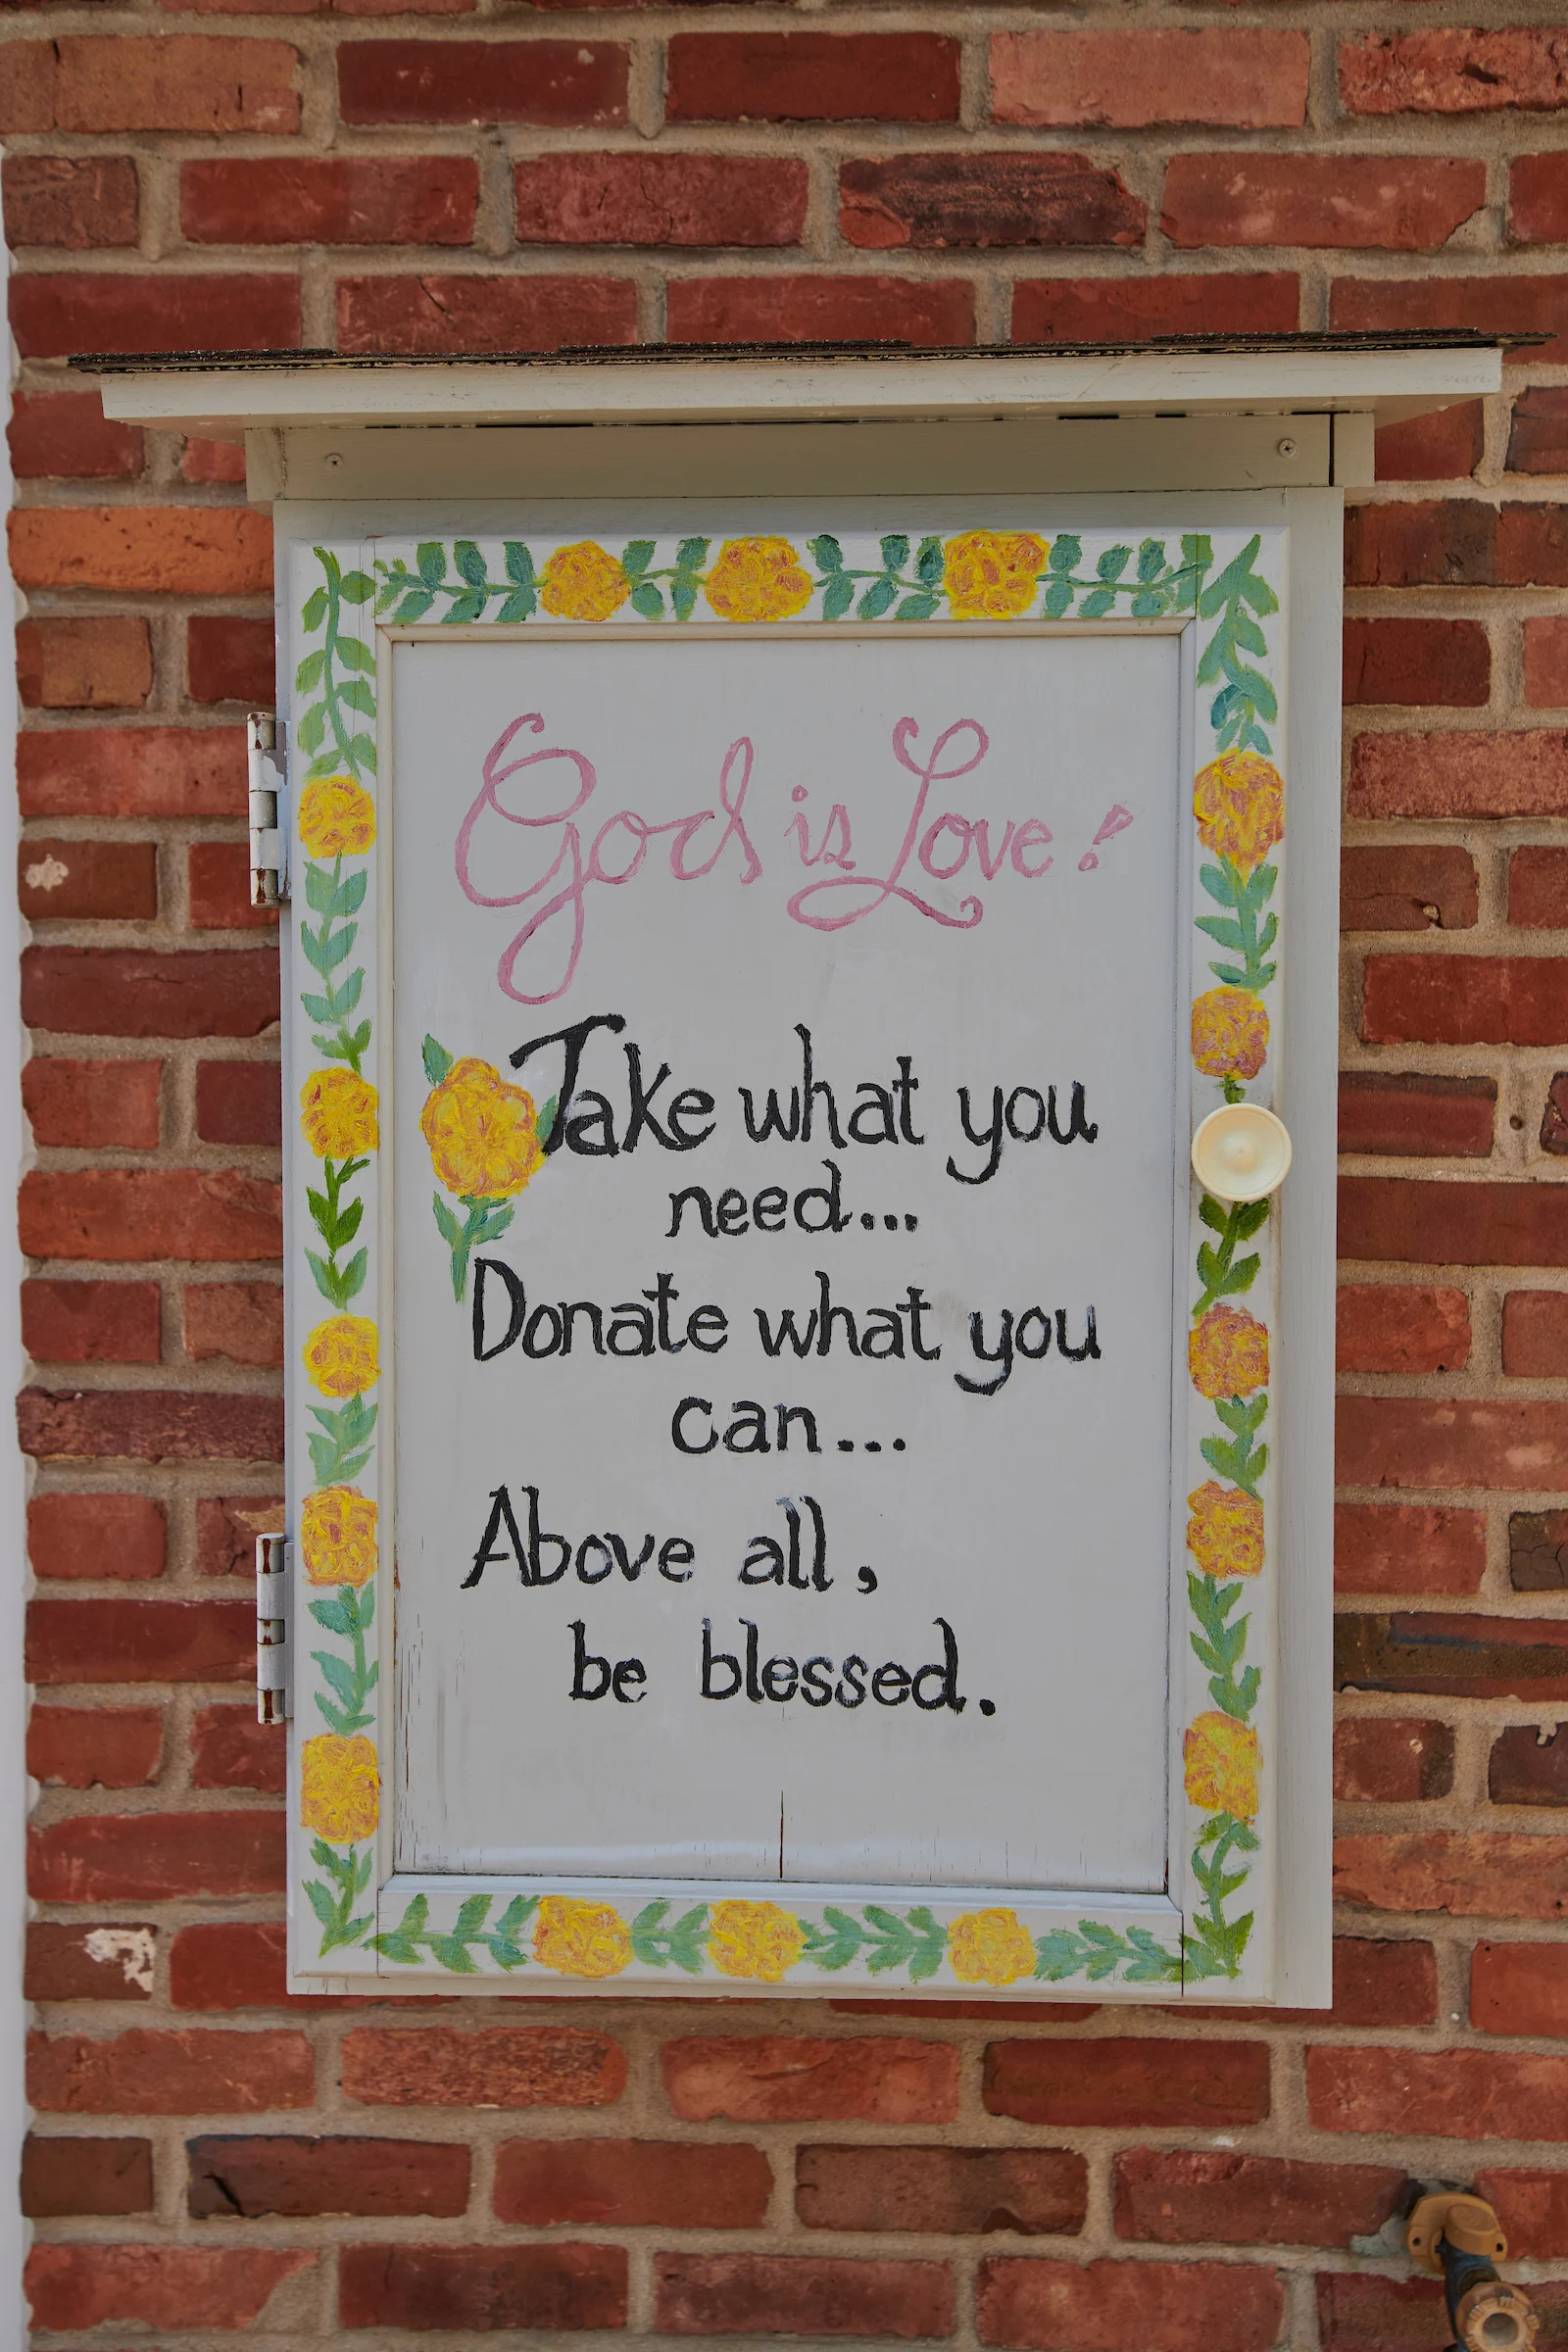 God is Love!
Take what you
need...
Donate what you
can...
Above all,
be blessed.